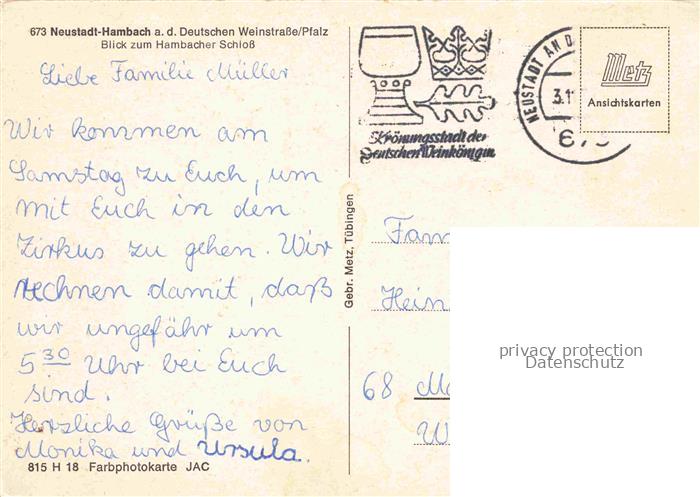 673 Neustadt-Hambach a. d. Deutschen Weinstraße/Pfalz
Blick zum Hambacher Schloß
Liebe Familie Müller
Wir kommen am
Samstag zu Euch, um
mit Euch in den
Zirkus zu gehen. Wir
rechnen damit, daß
wir ungefähr um
5 30 Uhr bei Euch
sind.
Herzliche Grüße von
Monika und Ursula.
815 H 18 Farbphotokarte JAC
Gebr. Metz, Tübingen
Krönungsstadt der
Deutschen Weinkönigin
NEUSTADT AN D
3.1
Metz
Ansichtskarten
Fam
Hein
68
privacy protection
Datenschutz